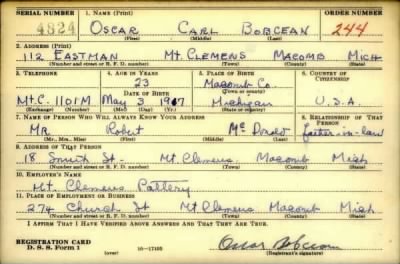 SERIAL NUMBER 1. NAME (Print) ORDER NUMBER
4824 OSCAR CARL BOBCEAN 244
(First) (Middle) (Last)
2. ADDRESS (Print)
112 EASTMAN MT. CLEMENS MACOMB MICH
(Number and street or R. F. D. number) (Town) (County) (State)
3. TELEPHONE 4. AGE IN YEARS 5. PLACE OF BIRTH 6. COUNTRY OF CITIZENSHIP
23 Macomb Co.
DATE OF BIRTH (Town or county)
Mt.C. 1101M May 3 1917 Michigan U.S.A.
(Exchange) (Number) (Mo.) (Day) (Yr.) (State or country)
7. NAME OF PERSON WHO WILL ALWAYS KNOW YOUR ADDRESS 8. RELATIONSHIP OF THAT PERSON
Mr. Robert McDonald
(Mr., Mrs., Miss) (First) (Middle) (Last)
9. ADDRESS OF THAT PERSON
18 Smith St. Mt. Clemens Macomb Mich
(Number and street or R. F. D. number) (Town) (County) (State)
10. EMPLOYER'S NAME
Mt. Clemens Pottery
11. PLACE OF EMPLOYMENT OR BUSINESS
274 Church St Mt. Clemens Macomb Mich
(Number and street or R. F. D. number) (Town) (County) (State)
I AFFIRM THAT I HAVE VERIFIED ABOVE ANSWERS AND THAT THEY ARE TRUE.
REGISTRATION CARD
D. S. S. Form 1 (over) 16-17105 Oscar Bobcean
(Registrant's signature)